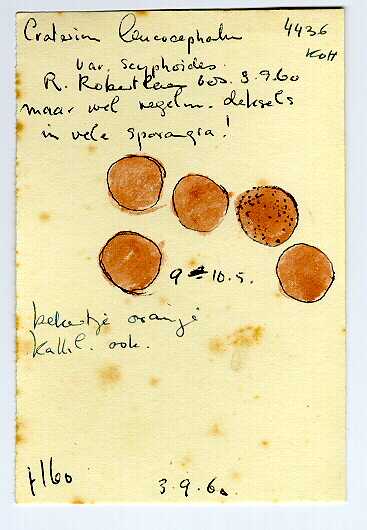 Craterium leucocephalum 4436
KOH
var. scyphoides.
R. Robertlaan bos. 3.9.60
maar wel regelm. deksels
in vele sporangia!
9 - 10.5.
bekertje oranje
kalkl. ook.
3.9.60